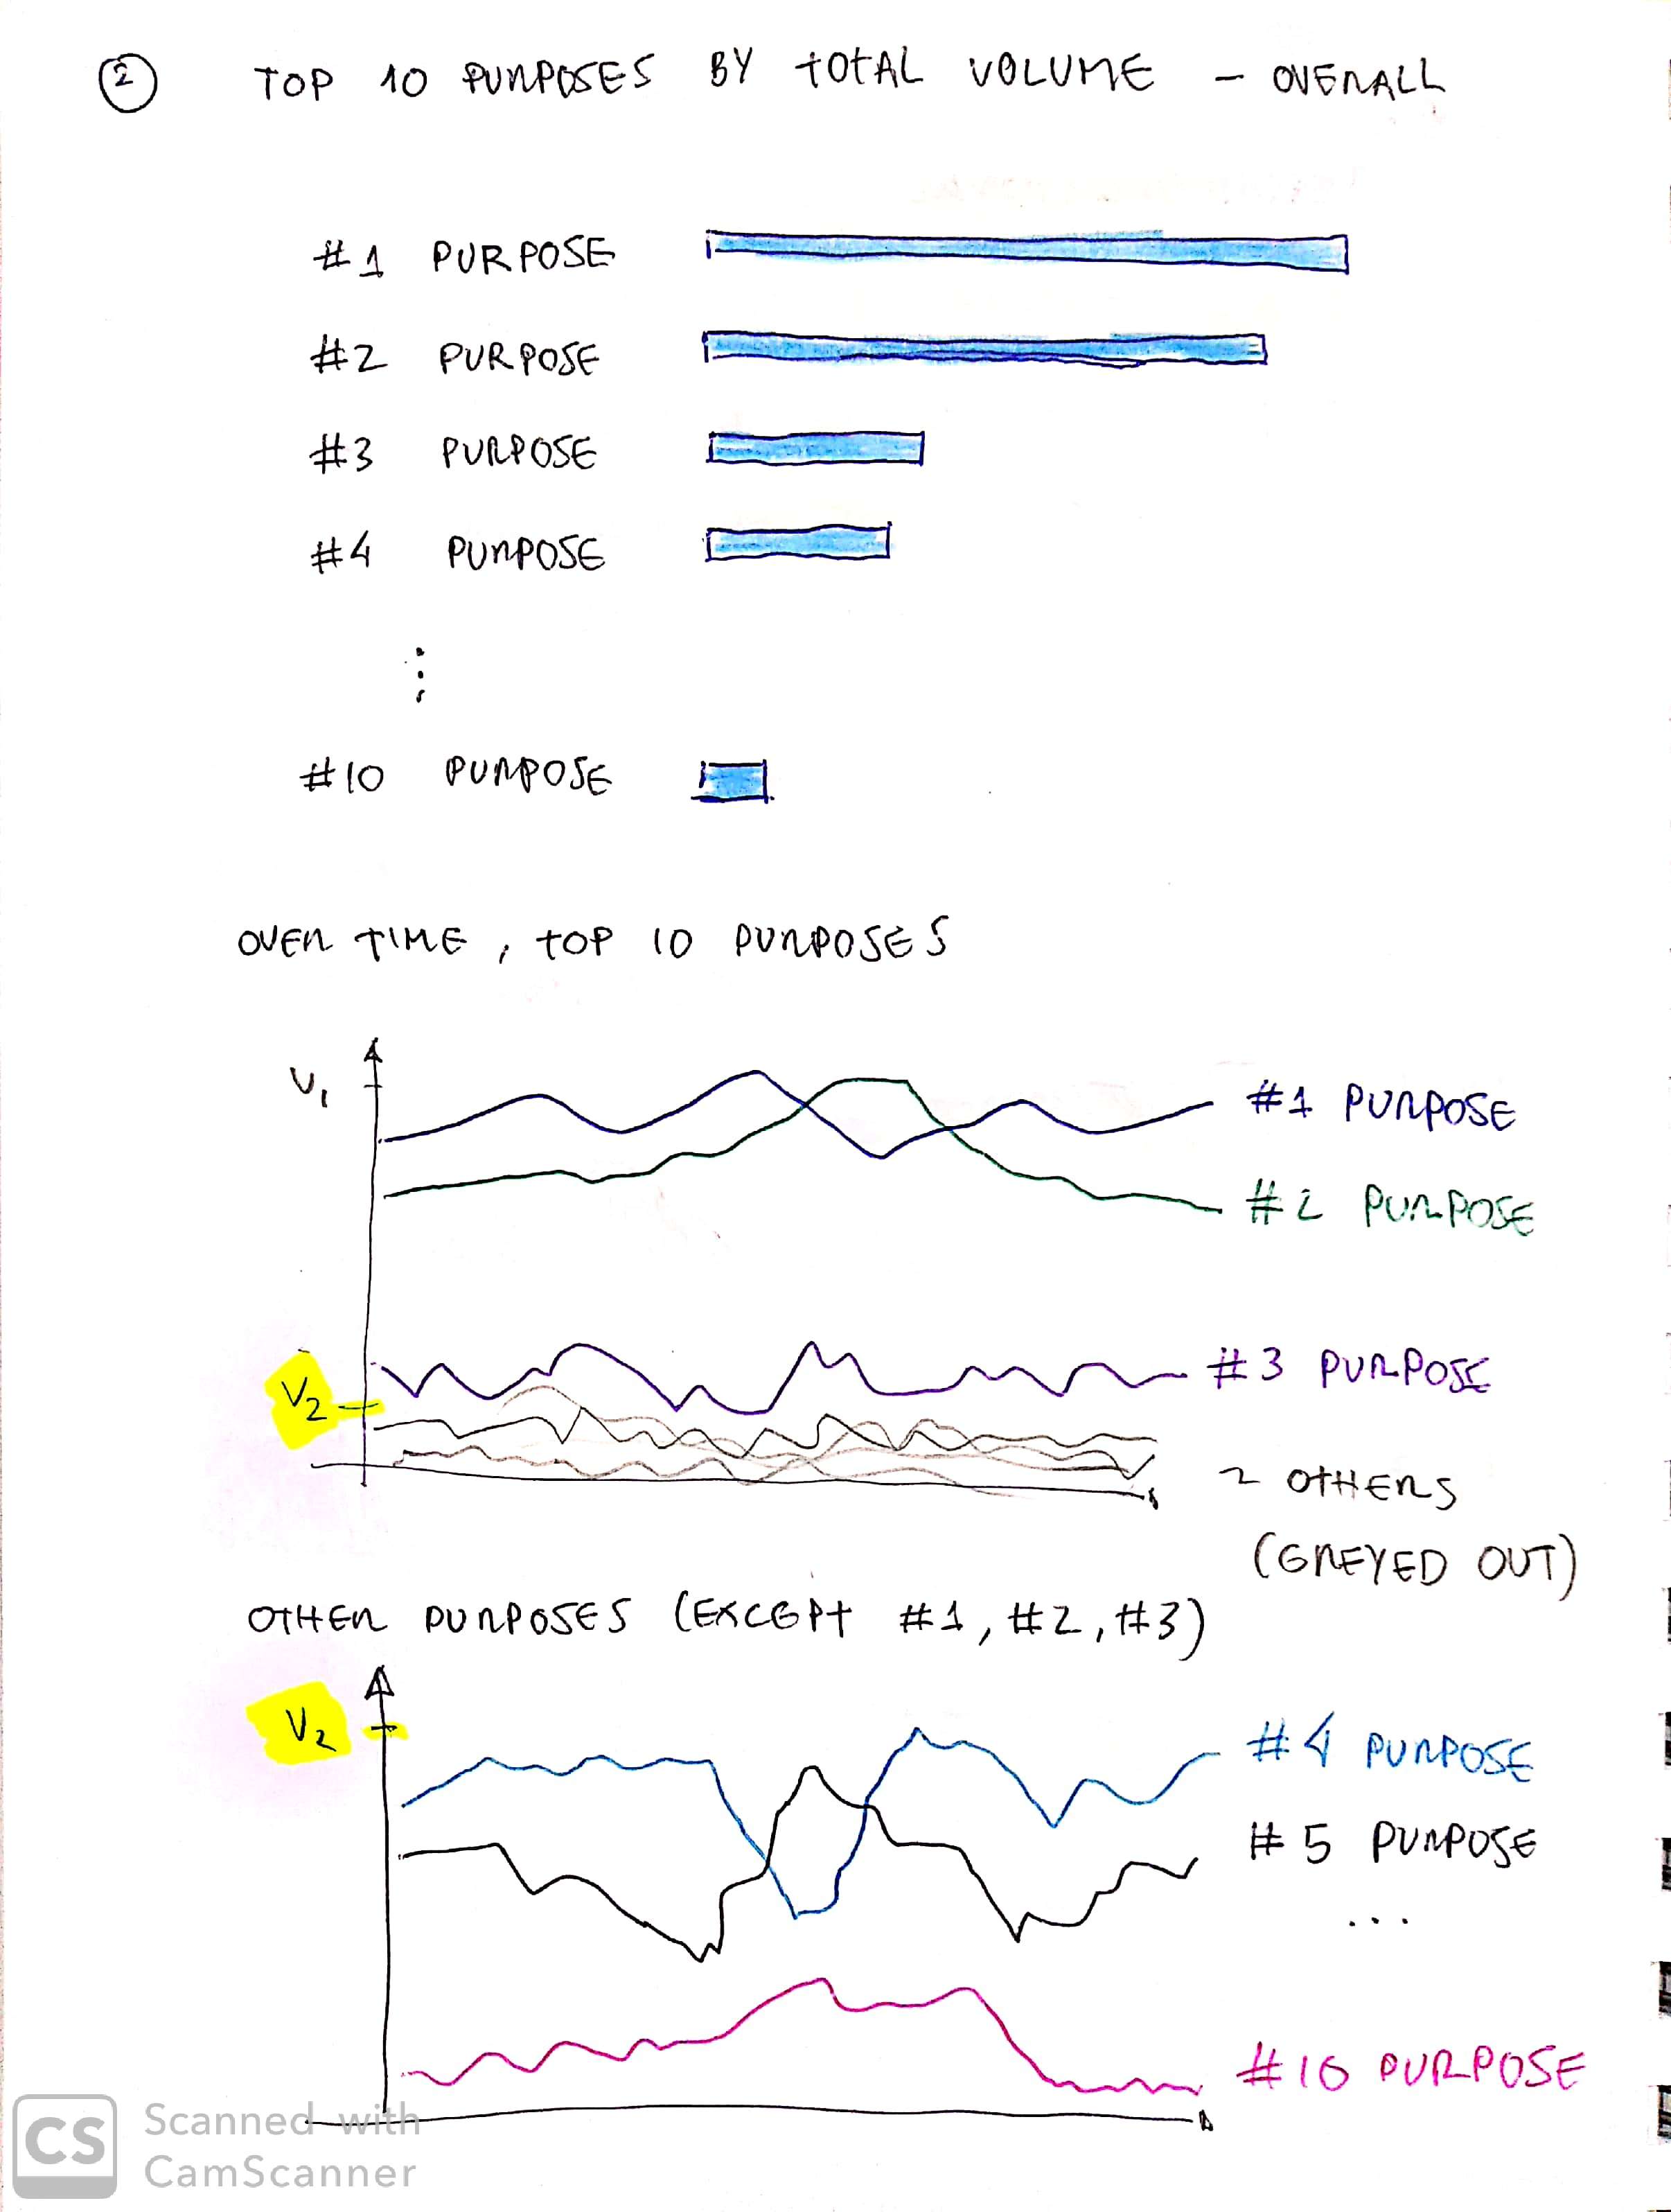 2 TOP 10 PURPOSES BY TOTAL VOLUME - OVERALL
#1 PURPOSE
#2 PURPOSE
#3 PURPOSE
#4 PURPOSE
⋮
#10 PURPOSE
OVER TIME, TOP 10 PURPOSES
V1
#1 PURPOSE
#2 PURPOSE
#3 PURPOSE
V2
OTHERS
(GREYED OUT)
OTHER PURPOSES (EXCEPT #1, #2, #3)
V2
#4 PURPOSE
#5 PURPOSE
...
#10 PURPOSE
CS Scanned with
CamScanner